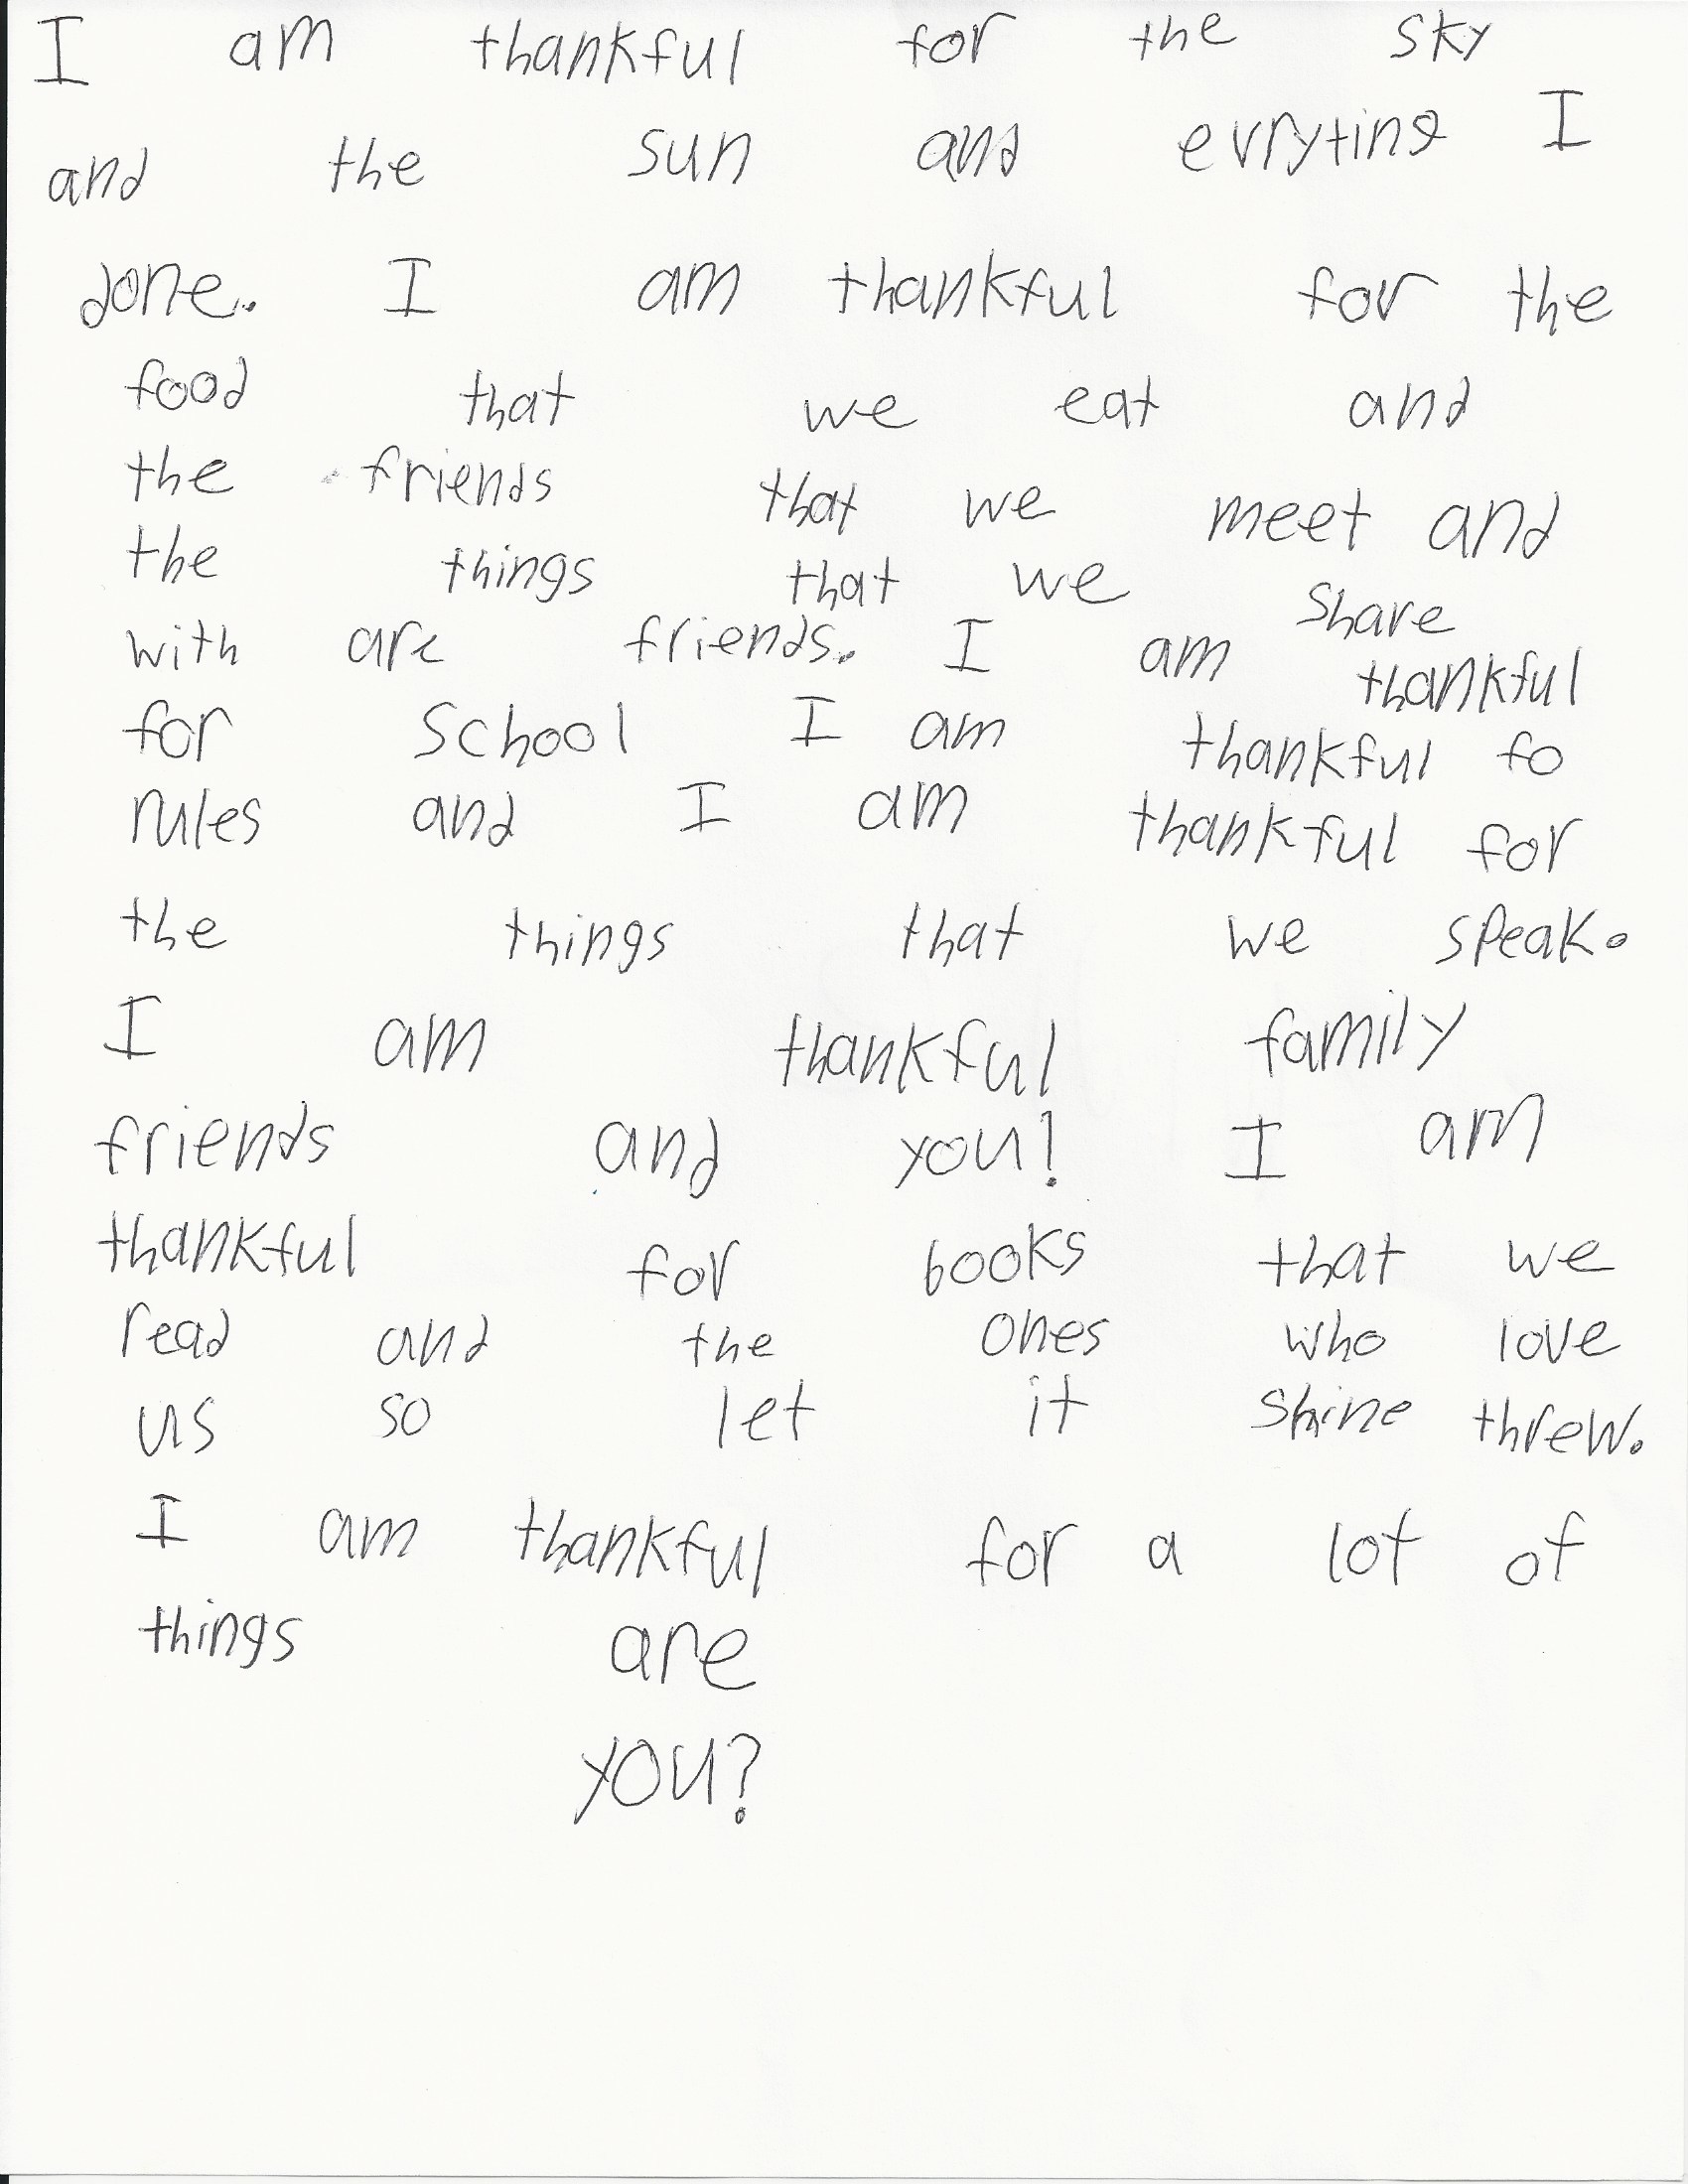 I am thankful for the sky
and the sun and evryting I
done. I am thankful for the
food that we eat and
the friends that we meet and
the things that we share
with are friends. I am thankful
for school I am thankful fo
rules and I am thankful for
the things that we speak.
I am thankful family
friends and you! I am
thankful for books that we
read and the ones who love
us so let it shine threw.
I am thankful for a lot of
things are
you?